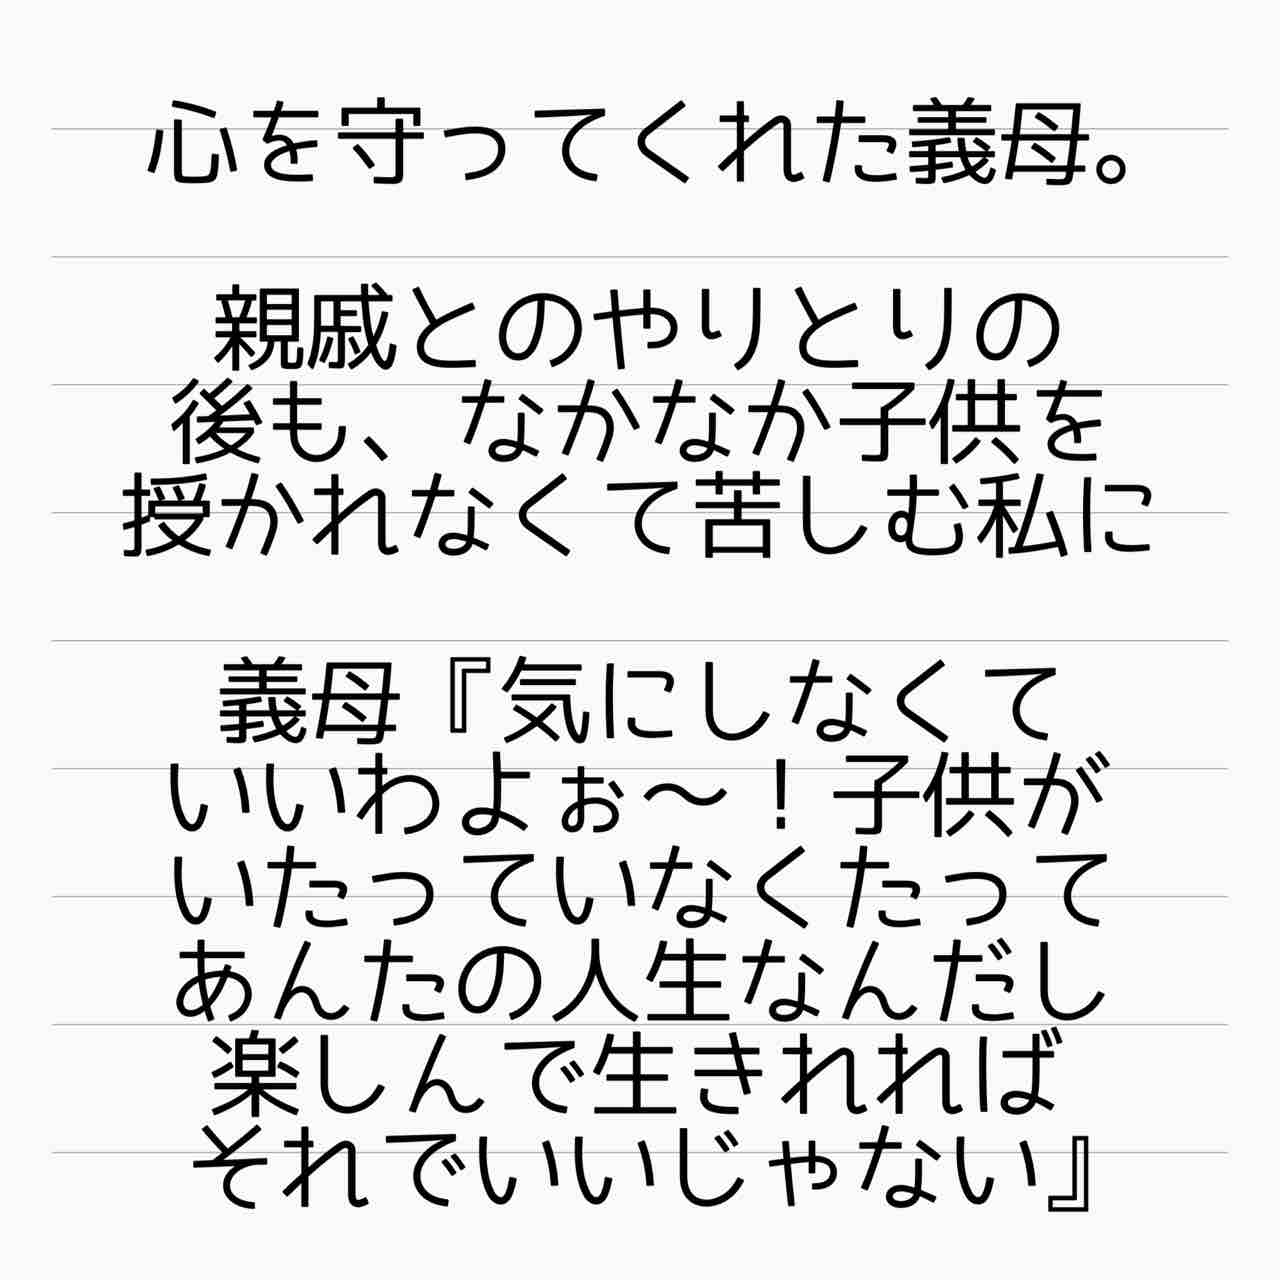 心を守ってくれた義母。
親戚とのやりとりの
後も、なかなか子供を
授かれなくて苦しむ私に
義母『気にしなくて
いいわよぉ〜！子供が
いたっていなくたって
あんたの人生なんだし
楽しんで生きれれば
それでいいじゃない』